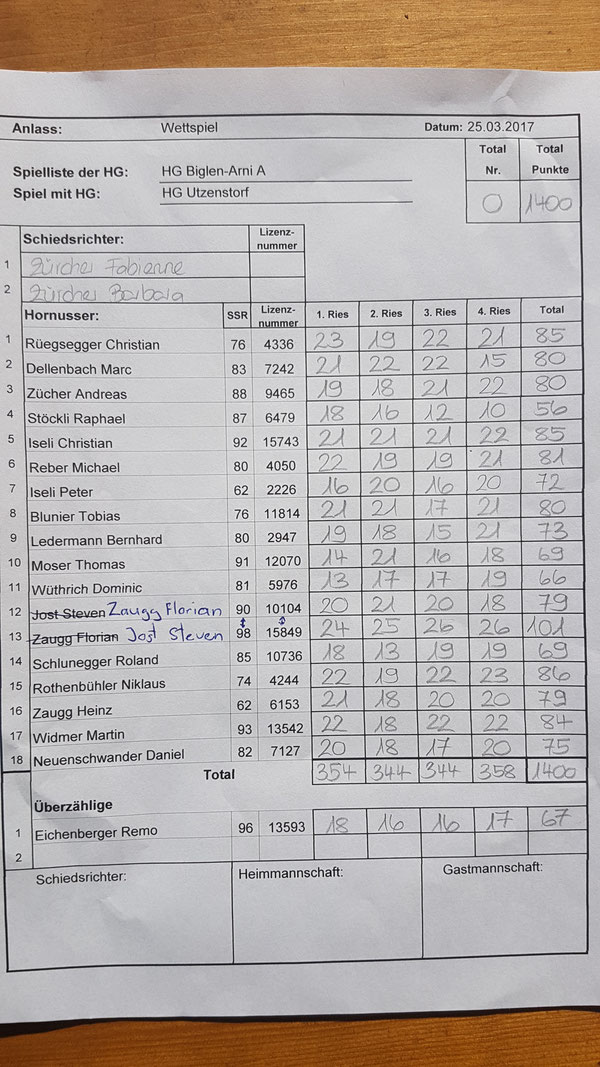 Anlass: Wettspiel Datum: 25.03.2017
Total Total
Spielliste der HG: HG Biglen-Arni A Nr. Punkte
Spiel mit HG: HG Utzenstorf 0 1400
Schiedsrichter: Lizenz-
nummer
1 Zürcher Fabienne
2 Zürcher Barbara
Hornusser: SSR Lizenz- 1. Ries 2. Ries 3. Ries 4. Ries Total
nummer
1 Rüegsegger Christian 76 4336 23 19 22 21 85
2 Dellenbach Marc 83 7242 21 22 22 15 80
3 Zücher Andreas 88 9465 19 18 21 22 80
4 Stöckli Raphael 87 6479 18 16 12 10 56
5 Iseli Christian 92 15743 21 21 21 22 85
6 Reber Michael 80 4050 22 19 19 21 81
7 Iseli Peter 62 2226 16 20 16 20 72
8 Blunier Tobias 76 11814 21 21 17 21 80
9 Ledermann Bernhard 80 2947 19 18 15 21 73
10 Moser Thomas 91 12070 14 21 16 18 69
11 Wüthrich Dominic 81 5976 13 17 17 19 66
12 Jost Steven Zaugg Florian 90 10104 20 21 20 18 79
13 Zaugg Florian Jost Steven 98 15849 24 25 26 26 101
14 Schlunegger Roland 85 10736 18 13 19 19 69
15 Rothenbühler Niklaus 74 4244 22 19 22 23 86
16 Zaugg Heinz 62 6153 21 18 20 20 79
17 Widmer Martin 93 13542 22 18 22 22 84
18 Neuenschwander Daniel 82 7127 20 18 17 20 75
Total 354 344 344 358 1400
Überzählige
1 Eichenberger Remo 96 13593 18 16 16 17 67
2
Schiedsrichter: Heimmannschaft: Gastmannschaft: